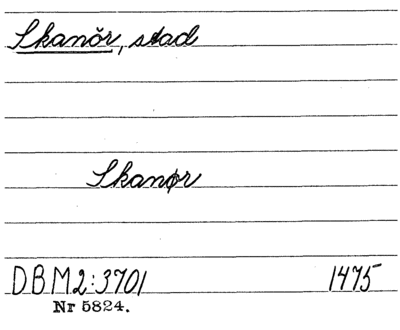 Skanör, stad
Skanør
DBM2:3701 1475
Nr 5824.